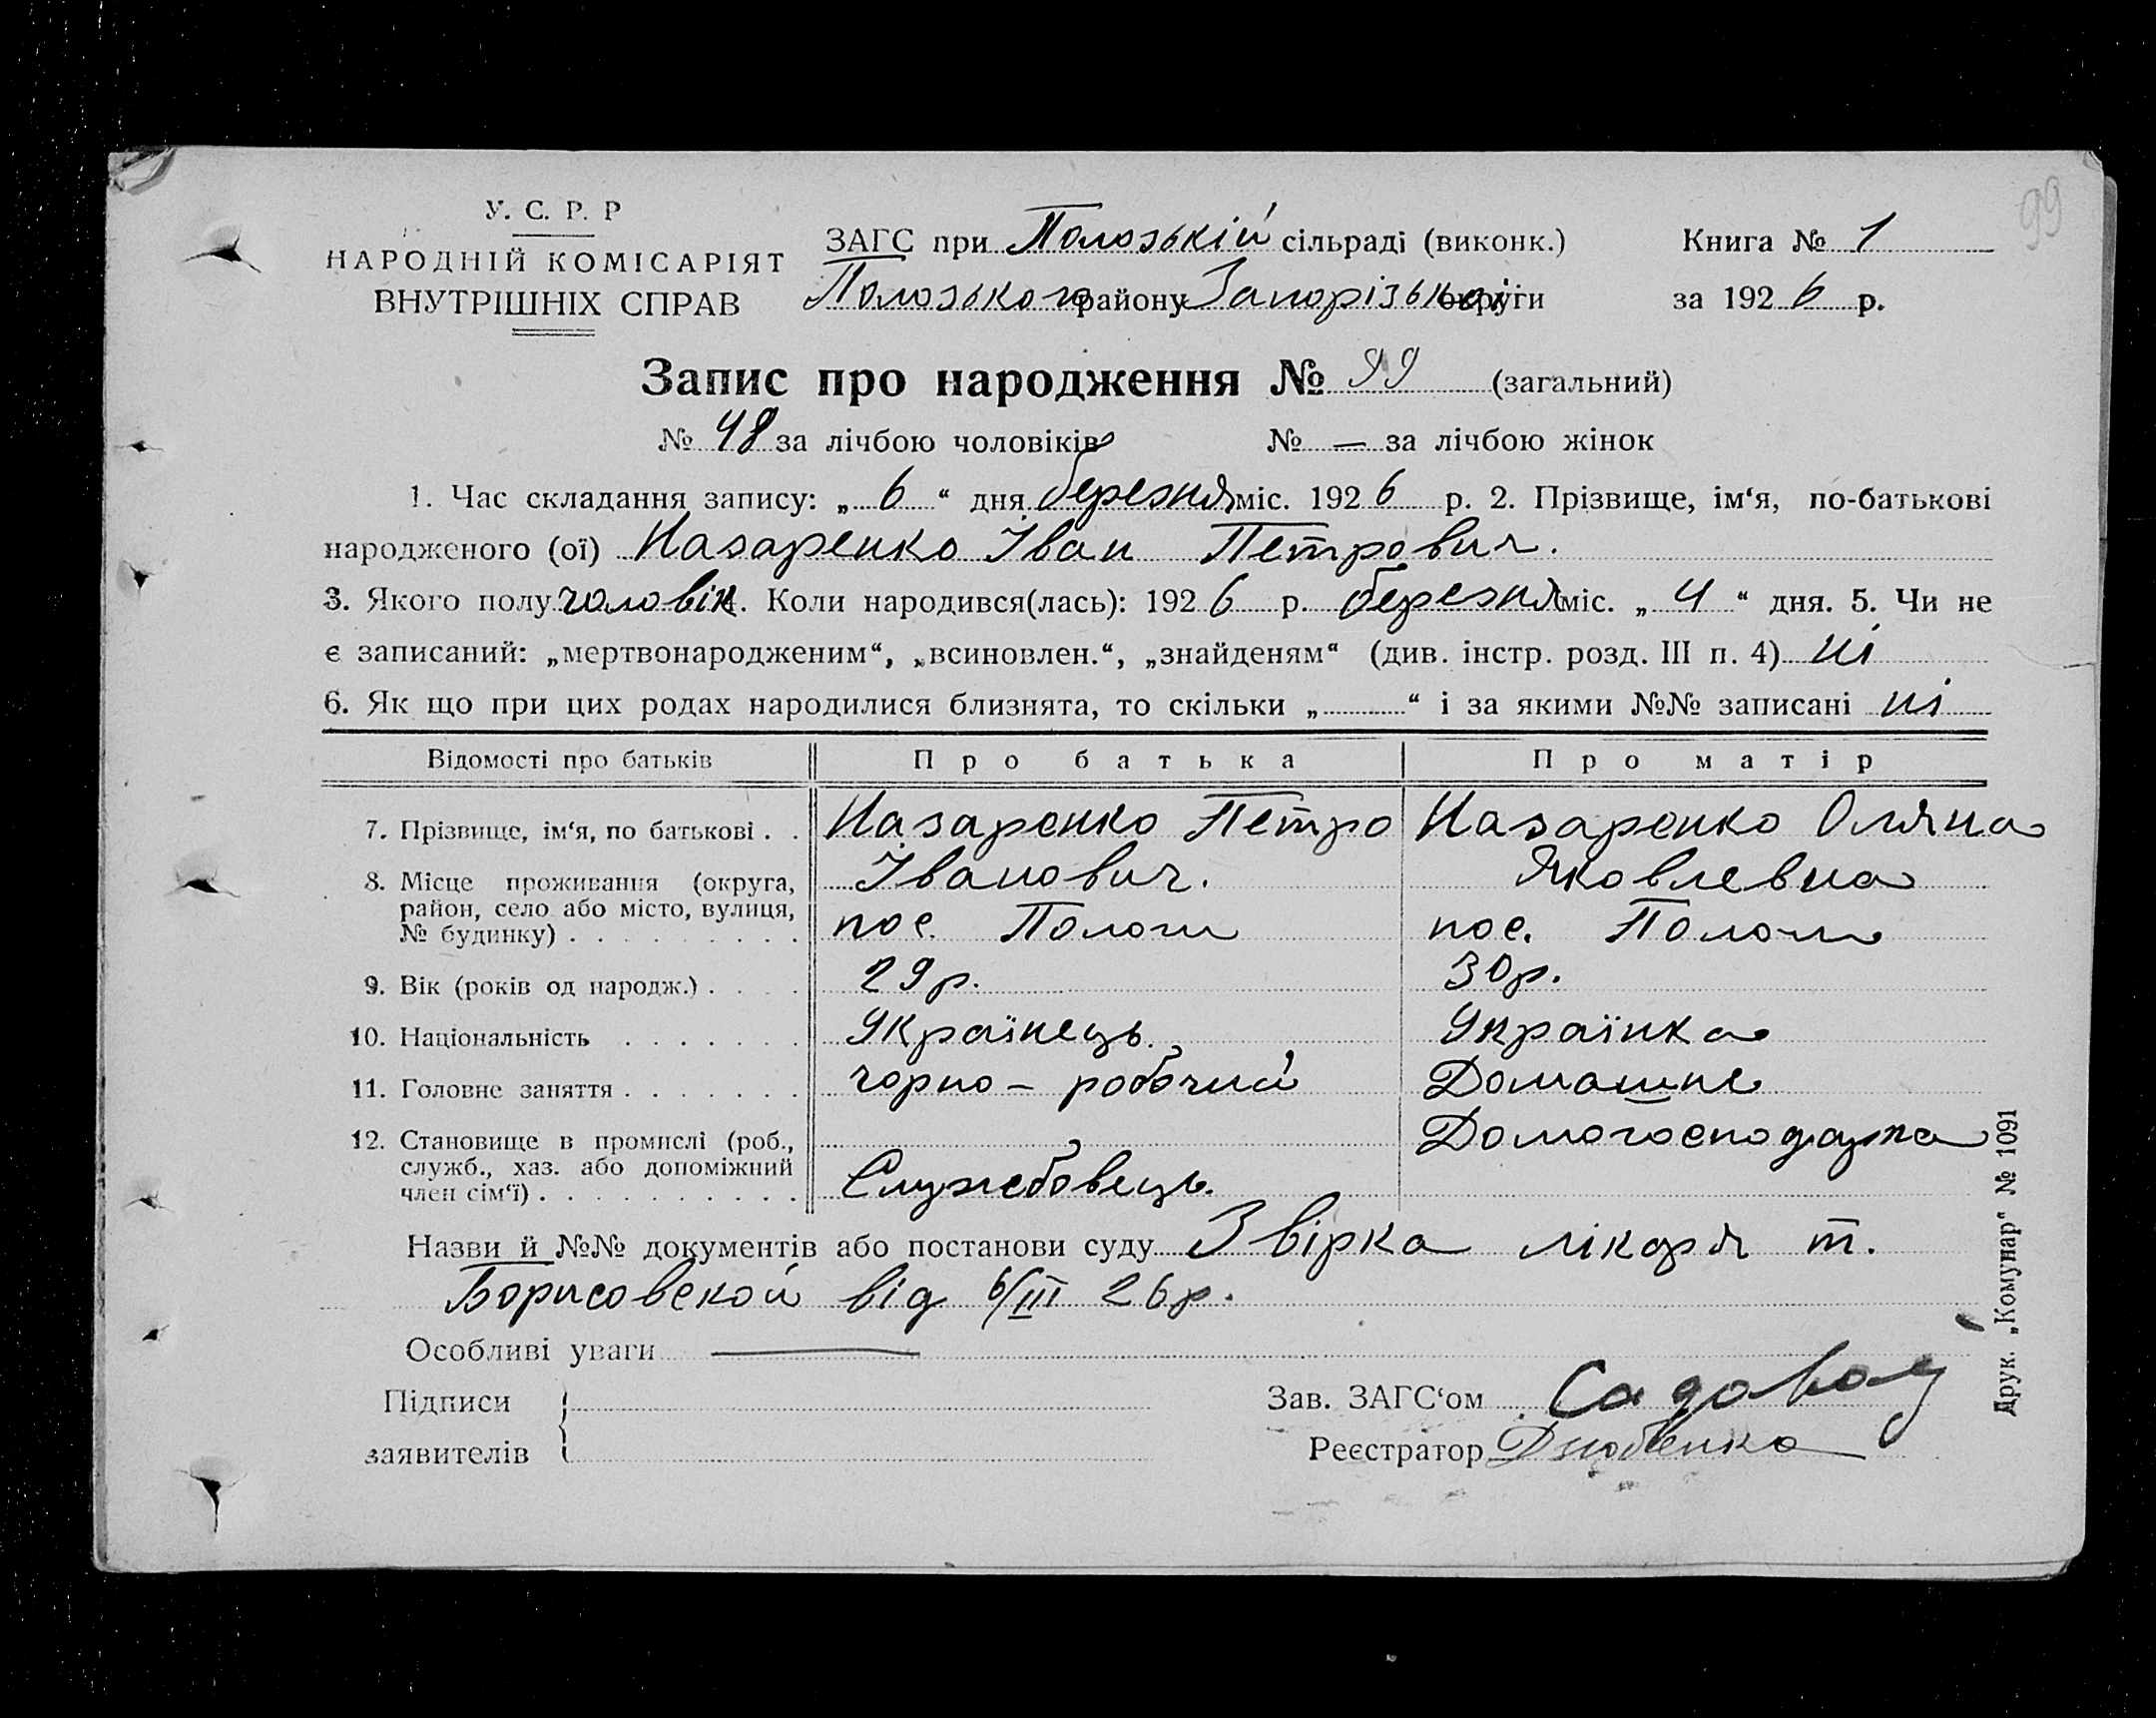 99
У. С. Р. Р
НАРОДНІЙ КОМІСАРІЯТ
ВНУТРІШНІХ СПРАВ
ЗАГС при Полозькій сільраді (виконк.)
Полозького району Запорізької округи
Книга № 1
за 1926 р.
Запис про народження № 99 (загальний)
№ 48 за лічбою чоловіків № — за лічбою жінок
1. Час складання запису: „ 6 “ дня березня міс. 1926 р. 2. Прізвище, ім‘я, по-батькові
народженого (ої) Назаренко Іван Петрович.
3. Якого полу чоловік. Коли народився(лась): 1926 р. березня міс. „ 4 “ дня. 5. Чи не
є записаний: „мертвонародженим“, „всиновлен.“, „знайденям“ (див. інстр. розд. III п. 4) ні
6. Як що при цих родах народилися близнята, то скільки „ “ і за якими №№ записані ні
Відомості про батьків Про батька Про матір
7. Прізвище, ім‘я, по батькові . . Назаренко Петро Назаренко Оляна
Іванович. Яковлевна
8. Місце проживання (округа,
район, село або місто, вулиця,
№ будинку) . . . . . . . . . пос. Пологи пос. Пологи
9. Вік (років од народж.) . . . . 29р. 30р.
10. Національність . . . . . . . Українець. Українка
11. Головне заняття . . . . . . . чорно – робочий Домашне
12. Становище в промислі (роб., Домогосподарка
служб., хаз. або допоміжний
член сім‘ї) . . . . . . . . . . Службовець.
Назви й №№ документів або постанови суду Звірка лікаря т.
Борисовской від 6/III 26р.
Особливі уваги —
Підписи
заявителів
Зав. ЗАГС‘ом Садовой
Реєстратор
Друк. „Комунар“ № 1091